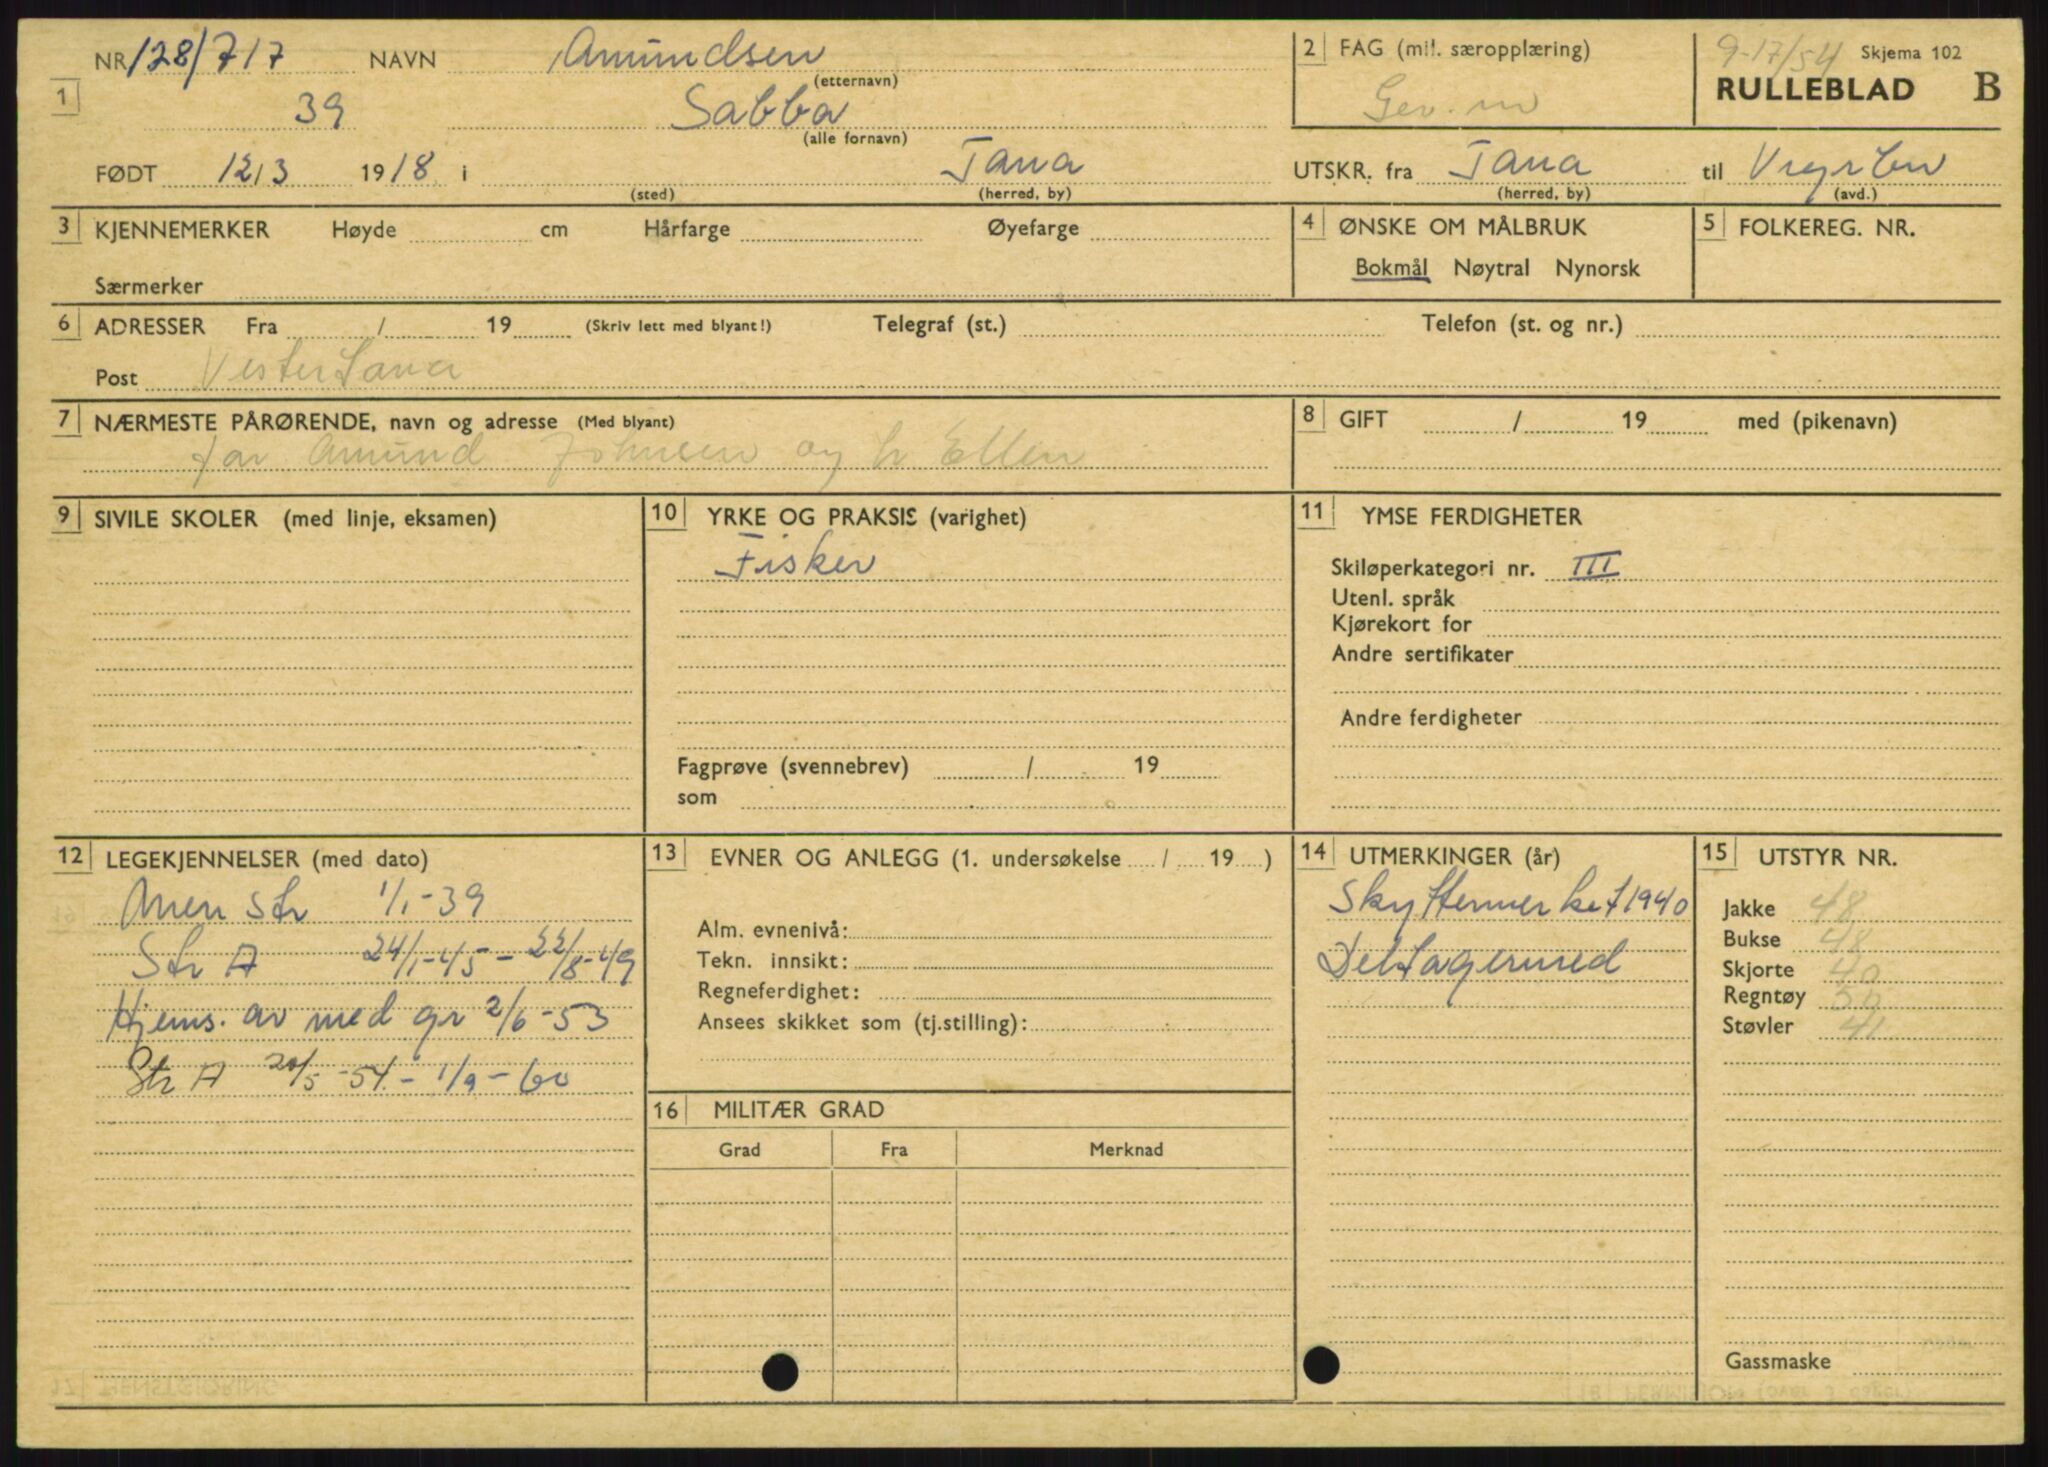 NR 128/717 NAVN Amundsen
(etternavn)
1
39 Sabba
(alle fornavn)
FØDT 12/3 1918 i Tana
(sted) (herred, by)
2 FAG (mil. særopplæring)
Gev. m
9-17/54 Skjema 102
RULLEBLAD B
UTSKR. fra Tana til
(herred, by) (avd.)
3 KJENNEMERKER Høyde cm Hårfarge Øyefarge
Særmerker
4 ØNSKE OM MÅLBRUK
Bokmål Nøytral Nynorsk
5 FOLKEREG. NR.
6 ADRESSER Fra / 19 (Skriv lett med blyant!) Telegraf (st.) Telefon (st. og nr.)
Post Vestertana
7 NÆRMESTE PÅRØRENDE, navn og adresse (Med blyant)
far Amund Johnsen og h Ellen
8 GIFT / 19 med (pikenavn)
9 SIVILE SKOLER (med linje, eksamen)
10 YRKE OG PRAKSIS (varighet)
Fisker
Fagprøve (svennebrev) / 19
som
11 YMSE FERDIGHETER
Skiløperkategori nr. III
Utenl. språk
Kjørekort for
Andre sertifikater
Andre ferdigheter
12 LEGEKJENNELSER (med dato)
Str 1/1-39
Str A 24/1-45 - 22/8-49
Hjems. av med gr 2/6-53
Str A 20/5-54 - 1/9-60
13 EVNER OG ANLEGG (1. undersøkelse / 19 )
Alm. evnenivå:
Tekn. innsikt:
Regneferdighet:
Ansees skikket som (tj.stilling):
14 UTMERKINGER (år)
Skyttermerket 1940
Deltagermed
15 UTSTYR NR.
Jakke 48
Bukse 48
Skjorte 40
Regntøy 50
Støvler 41
Gassmaske
16 MILITÆR GRAD
Grad Fra Merknad